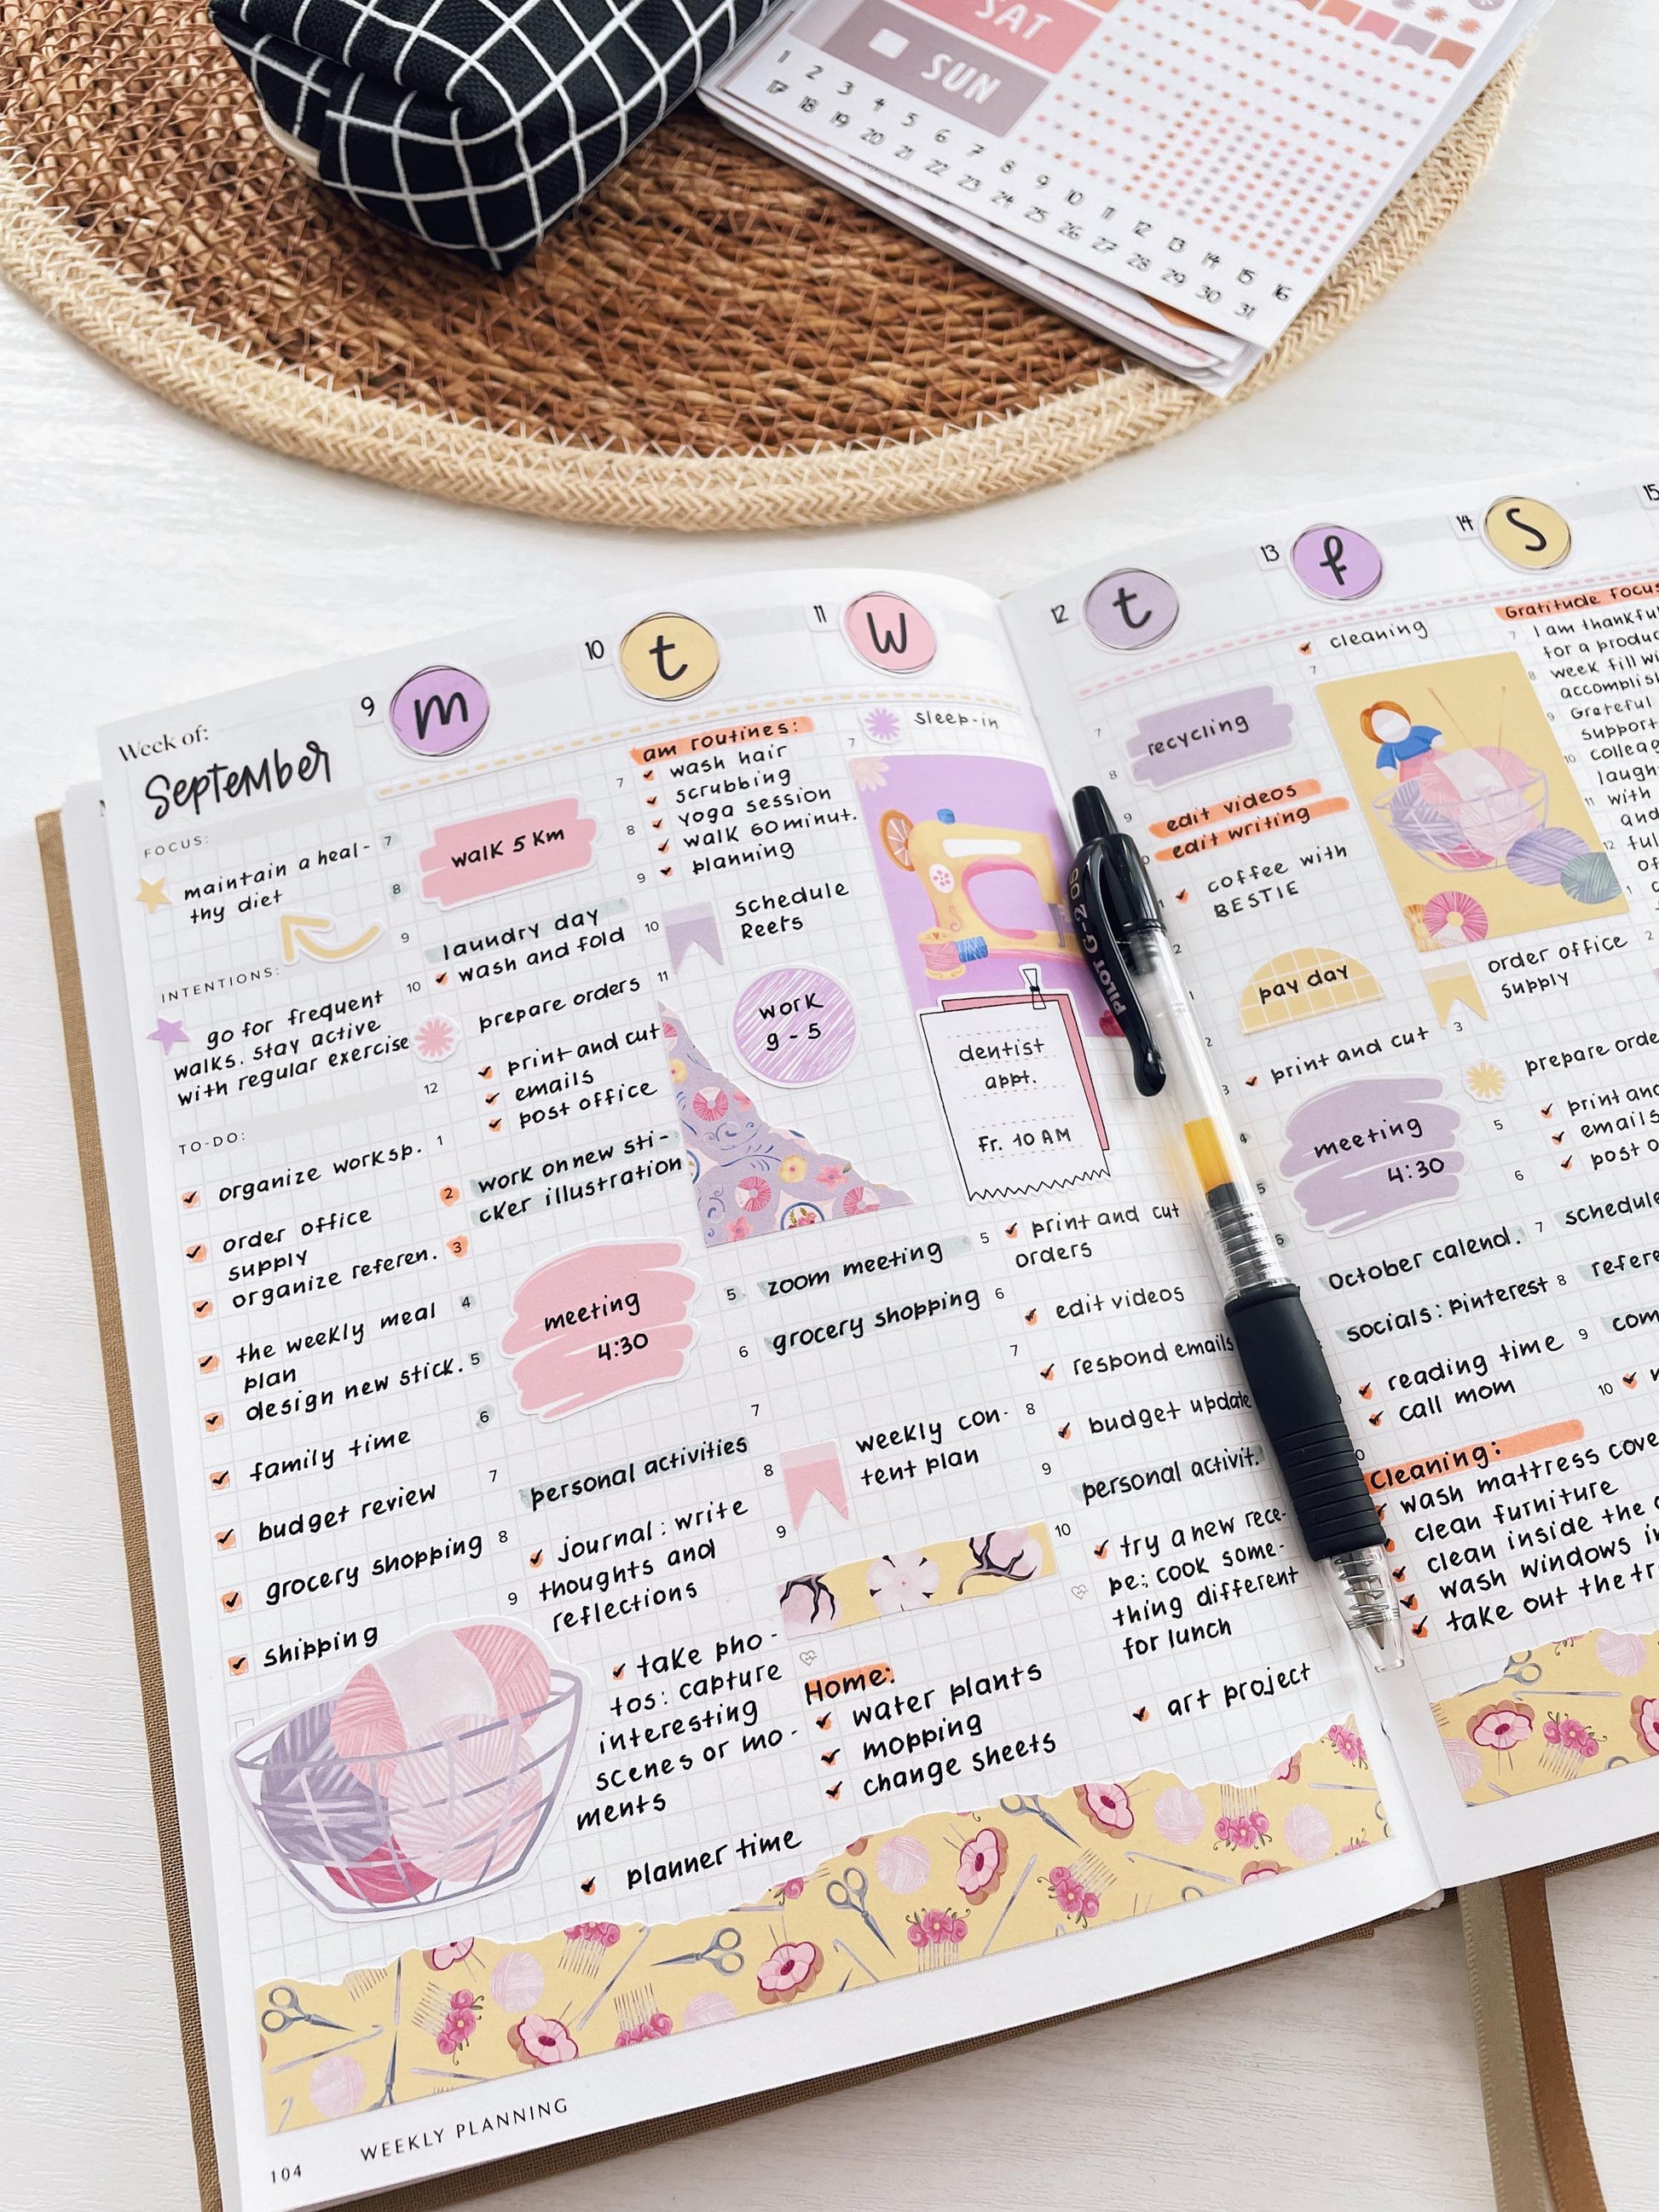 SAT
SUN
1 2 3 4 5 6 7 8 9 10 11 12 13 14 15 16
17 18 19 20 21 22 23 24 25 26 27 28 29 30 31
Week of:
September
FOCUS:
maintain a heal-
thy diet
INTENTIONS:
go for frequent
walks. stay active
with regular exercise
TO-DO:
organize worksp.
order office
supply
organize referen.
the weekly meal
plan
design new stick.
family time
budget review
grocery shopping
shipping
9 m
7
8
9
10
12
1
2
3
4
5
6
7
8
9
walk 5 Km
laundry day
wash and fold
prepare orders
print and cut
emails
post office
work on new sti-
cker illustration
meeting
4:30
personal activities
journal: write
thoughts and
reflections
take pho-
tos: capture
interesting
scenes or mo-
ments
planner time
10 t
7
8
9
10
11
5
6
7
8
9
am routines:
wash hair
scrubbing
yoga session
walk 60 minut.
planning
schedule
Reels
work
9 - 5
zoom meeting
grocery shopping
weekly con-
tent plan
Home:
water plants
mopping
change sheets
11 W
7
5
6
7
8
9
10
sleep-in
dentist
appt.
Fr. 10 AM
print and cut
orders
edit videos
respond emails
budget update
personal activit.
try a new rece-
pe: cook some-
thing different
for lunch
art project
PILOT G-2 05
12 t
7
8
9
recycling
edit videos
edit writing
coffee with
BESTIE
pay day
print and cut
meeting
4:30
October calend.
socials: pinterest
reading time
call mom
Cleaning:
wash mattress cove
clean furniture
clean inside the
wash windows in
take out the tr
13 f
7
cleaning
order office
supply
3
prepare orde
print and
emails
post o
5
6
7
schedule
8
refere
9
com
10
14 S
Gratitude focus
7
I am thankful
for a produc
8
week fill wi
accomplis
9
Grateful
support
10
colleag
laugh
11
with
and
12
ful
of
1
2
15
104
WEEKLY PLANNING